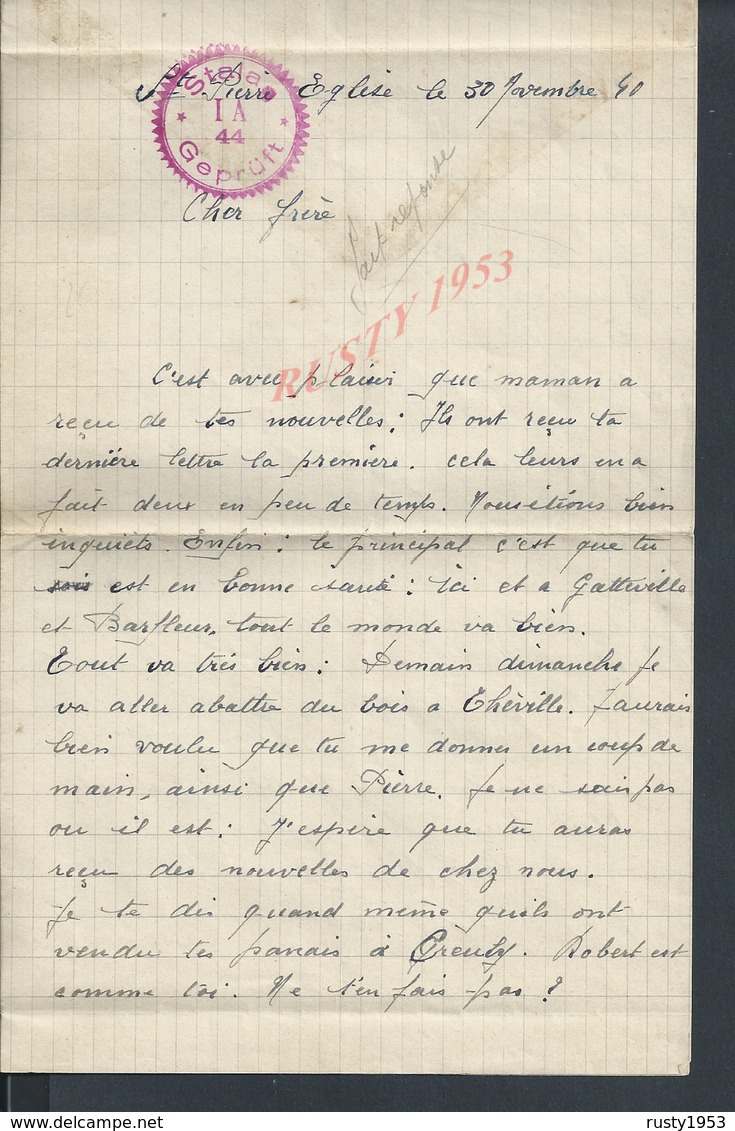 St Pierre Eglise le 30 Novembre 40
Stalag
I A
44
Geprüft
fait reponse
Cher frère
RUSTY 1953
C'est avec plaisir que maman a
reçu de tes nouvelles; Ils ont reçu ta
dernière lettre la première. cela leurs en a
fait deux en peu de temps. Nous étions bien
inquiets. Enfin: le principal c'est que tu
est en bonne santé: ici et a Gatteville
et Barfleur, tout le monde va bien.
Tout va très bien: Demain dimanche Je
va aller abattre du bois a Théville. J'aurais
bien voulu que tu me donnes un coup de
main, ainsi que Pierre. Je ne sais pas
ou il est: J'espère que tu auras
reçu des nouvelles de chez nous.
Je te dis quand même quils ont
vendu tes panais à Creully. Robert est
comme toi. Ne t'en fais pas?
delcampe.net
rusty1953